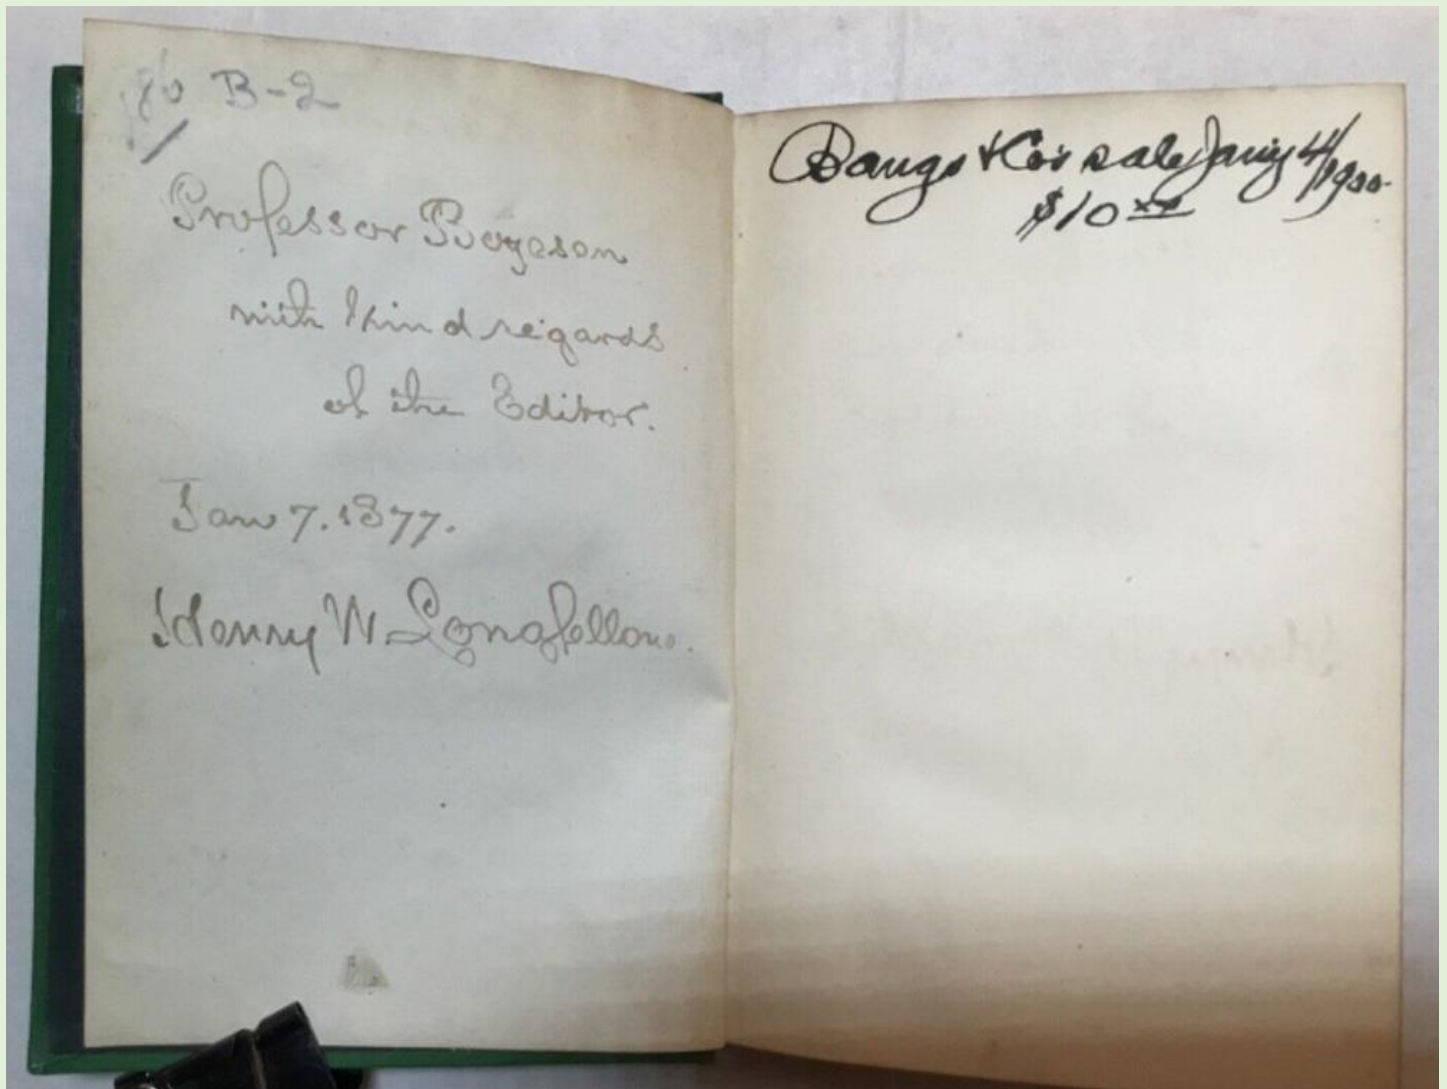 B-2
Professor Boyesen
with kind regards
of the Editor.
Jan 7. 1877.
Henry W. Longfellow.
Bangs & Co's sale Jany 4/1900
$10 xx